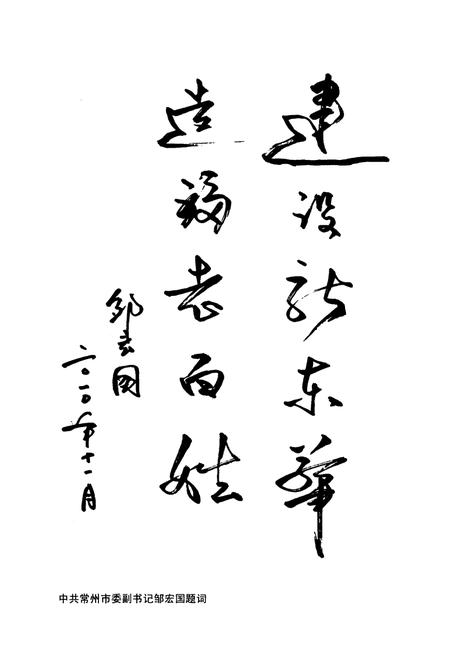 建设新东华
造福老百姓
邹宏国
二〇一〇年十一月
中共常州市委副书记邹宏国题词